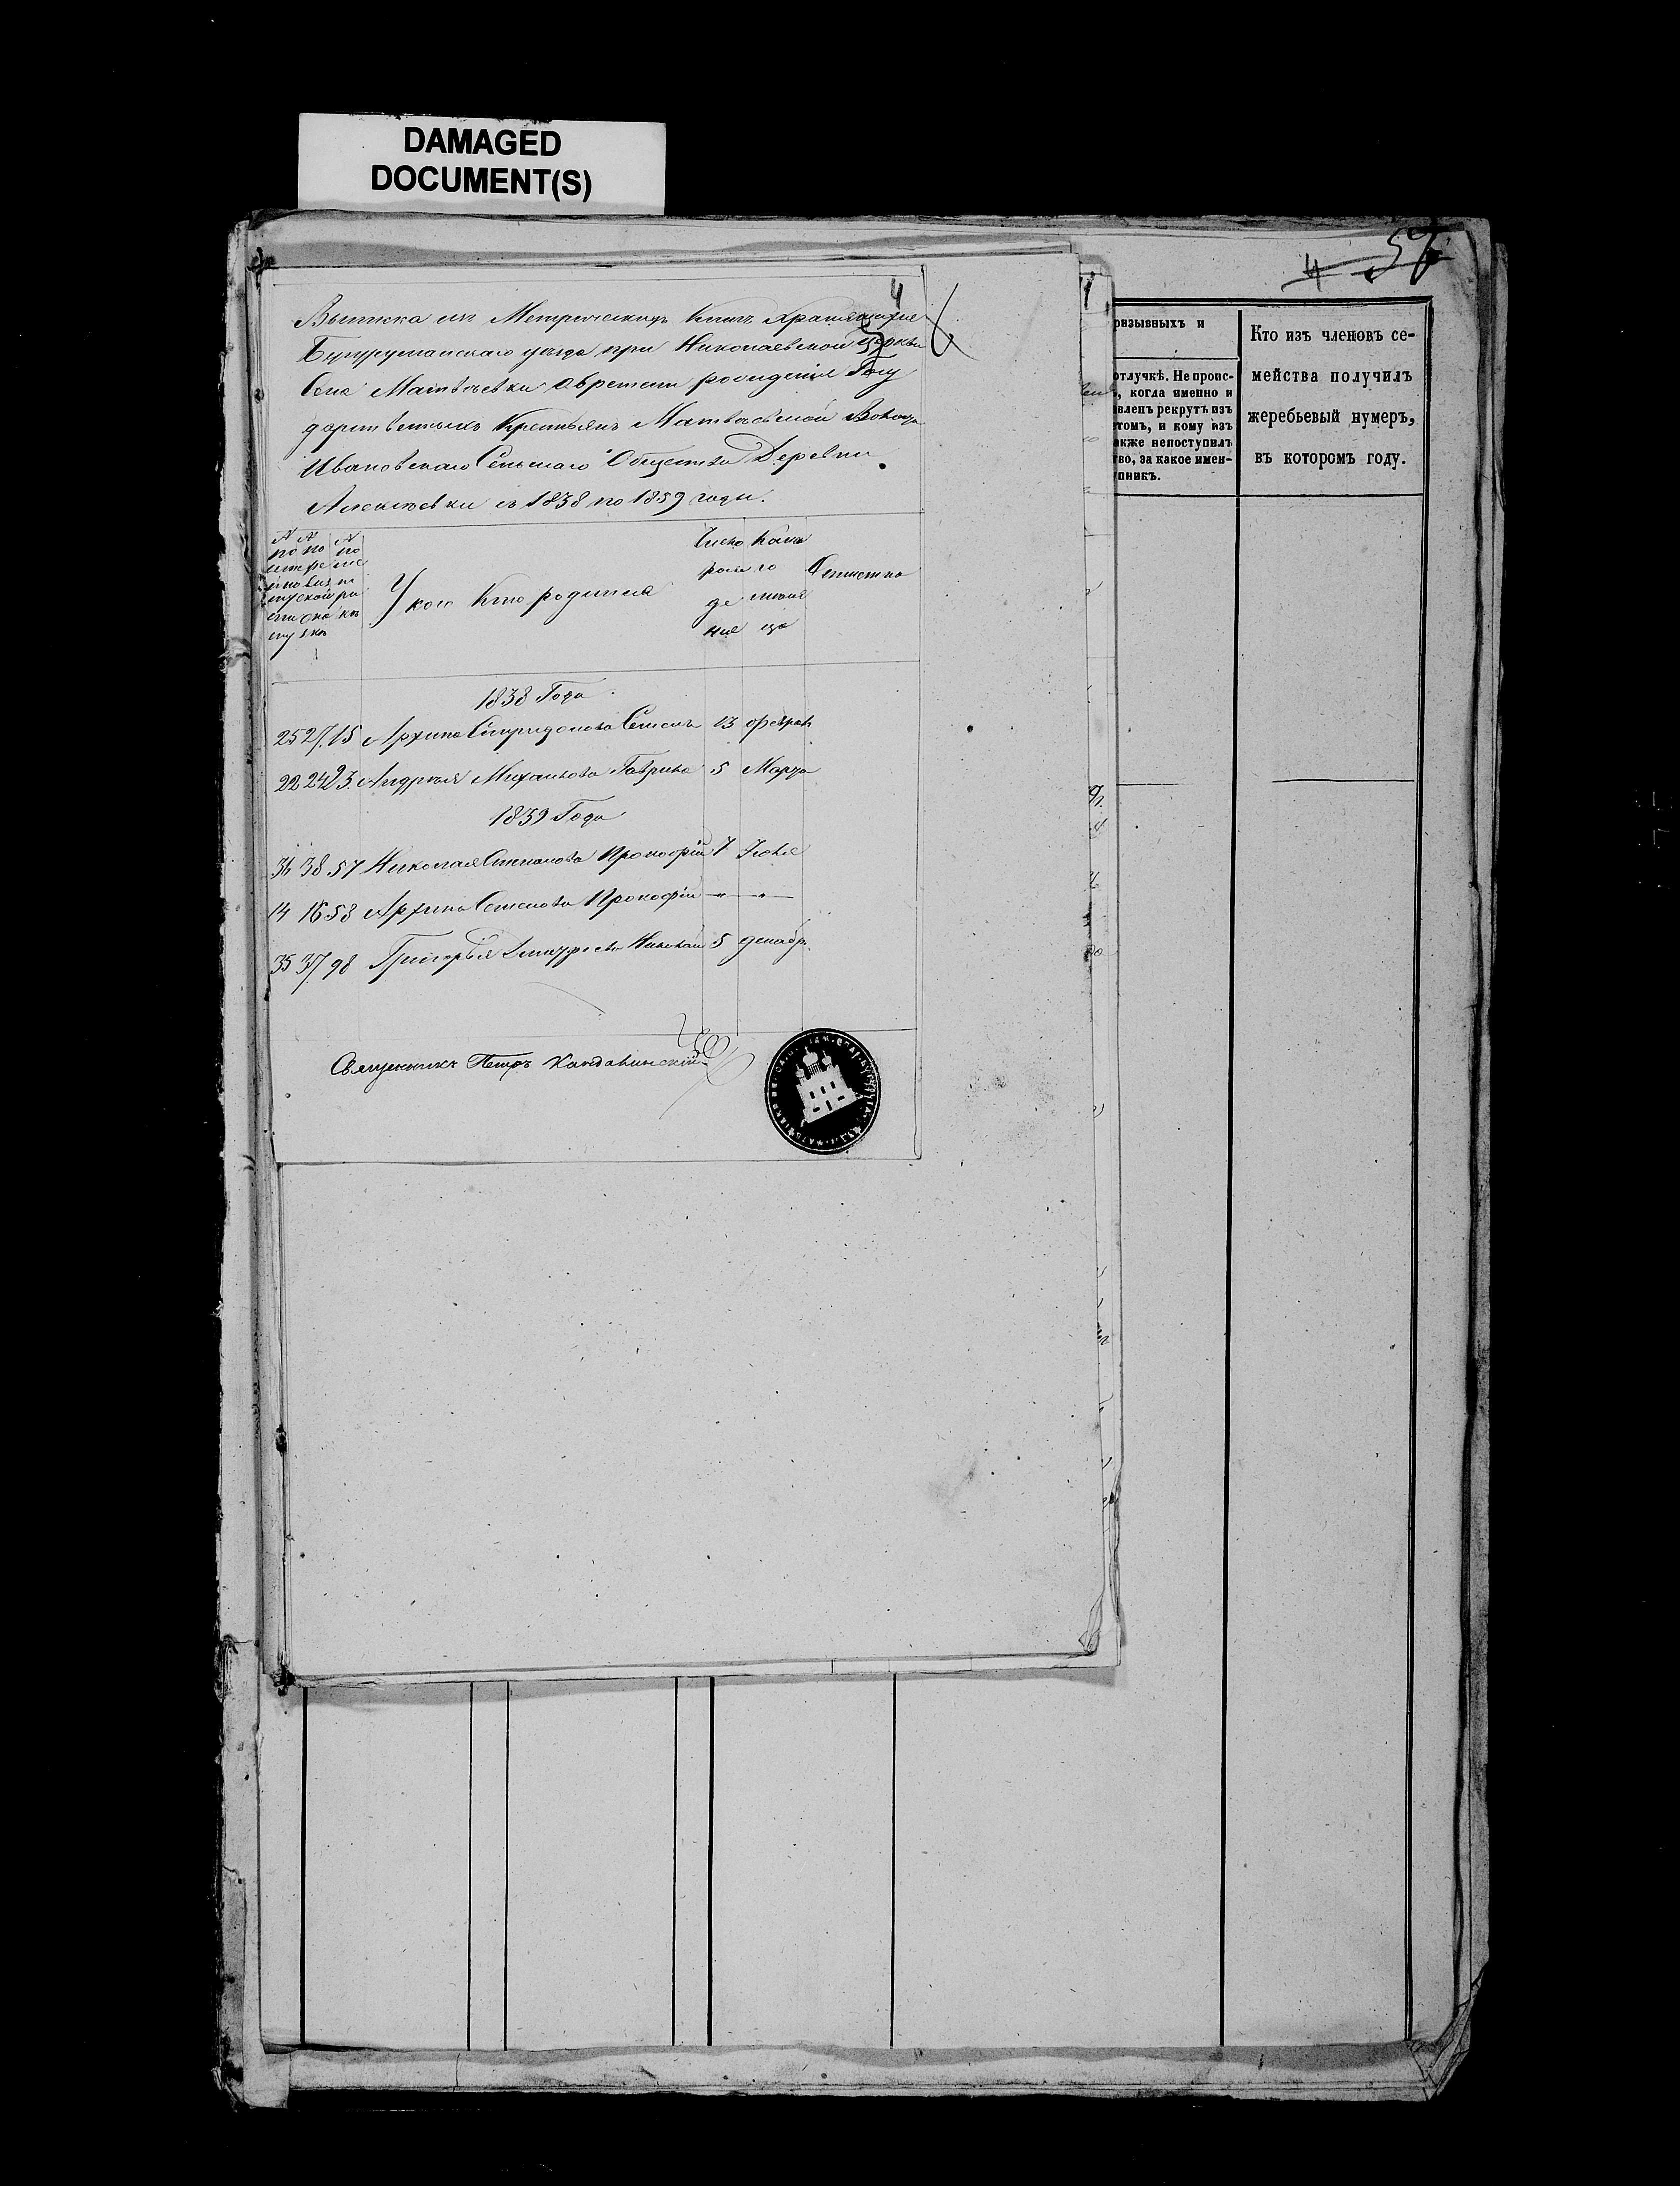 DAMAGED
DOCUMENT(S)
57
4
4
Выписка изъ Метрическихъ Книгъ хранящихся
Бугурусланскаго уезда при Николаевской церкви
Села Матвѣевки о времени рождения Госу
дарственныхъ Крестьянъ Матвѣевской Волости
Ивановскаго Сельскаго Общества Деревни
Алексѣевки съ 1838 по 1859 годы.
У кого Кто родился
Число рож де ния
Кака го меся ца
Отметка
1838 Года
25 27 15 Архипа Спиридонова Семенъ 13 феврал
22 24 23. Андрея Михайлова Гаврила 5 Марта
1839 Года
36 38 57 Николая Степанова Прокофий 7 Июля
14 16 58 Архипа Семенова Прокофий — " — " —
35 37 98 Григорья Николай 5 декабр.
Священникъ Петръ
ризывныхъ и
отлучкѣ. Не проис-
, когда именно и
авленъ рекрутъ изъ
томъ, и кому изъ
акже непоступилъ
тво, за какое имен-
пникъ.
Кто изъ членовъ се-
мейства получилъ
жеребьевый нумеръ,
въ которомъ году.